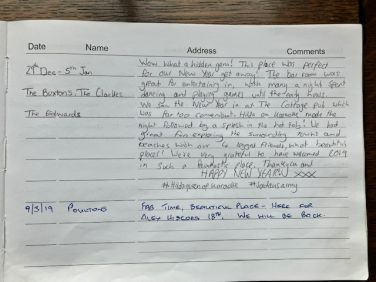 Date Name Address Comments
Wow what a hidden gem! This place was perfect
29th Dec - 5th Jan for our New Year get away! The bar room was
great for entertaining in, with many a night spent
The Buxtons, The Clarkes dancing and playing games until the early hours.
We saw the New Year in at The Cottage pub which
The Edwards was far too convenient! Hilda on Karaoke made the
night followed by a splash in the hot tub! We had
great fun exploring the surrounding towns and
beaches with our 4 legged friends, what beautiful
places! We're very grateful to have welcomed 2019
in such a fantastic place. Thankyou and
HAPPY NEW YEAR!! xxx
#Hildaqueenofkaraoke
9/3/19 Poultons Fab time, beautiful place - here for
Alex 18th. We will be back.